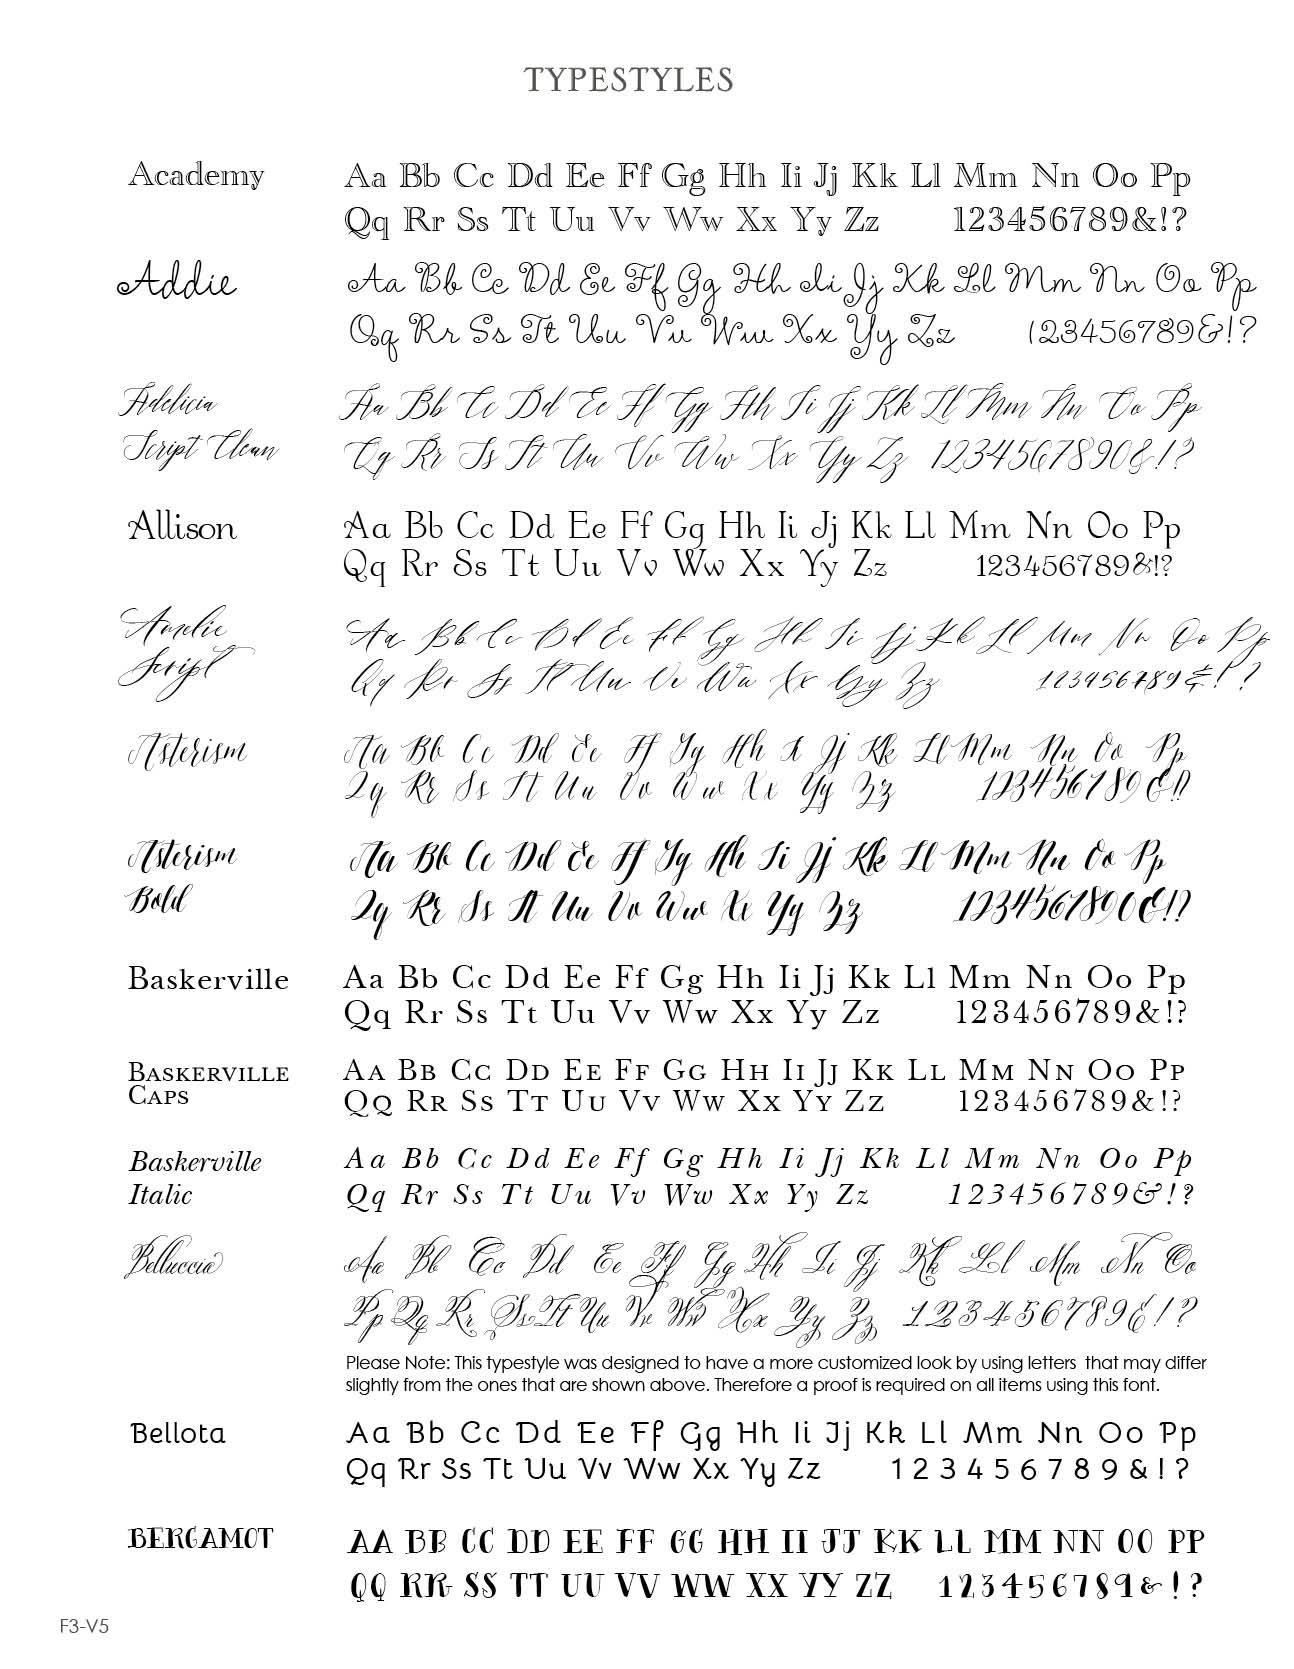 TYPESTYLES
Academy
Aa Bb Cc Dd Ee Ff Gg Hh Ii Jj Kk Ll Mm Nn Oo Pp
Qq Rr Ss Tt Uu Vv Ww Xx Yy Zz 123456789&!?
Addie
Aa Bb Cc Dd Ee Ff Gg Hh Ii Jj Kk Ll Mm Nn Oo Pp
Qq Rr Ss Tt Uu Vv Ww Xx Yy Zz 123456789&!?
Adelicia
Script Clean
Aa Bb Cc Dd Ee Ff Gg Hh Ii Jj Kk Ll Mm Nn Oo Pp
Qq Rr Ss Tt Uu Vv Ww Xx Yy Zz 1234567890&!?
Allison
Aa Bb Cc Dd Ee Ff Gg Hh Ii Jj Kk Ll Mm Nn Oo Pp
Qq Rr Ss Tt Uu Vv Ww Xx Yy Zz 123456789&!?
Amelie
Script
Aa Bb Cc Dd Ee Ff Gg Hh Ii Jj Kk Ll Mm Nn Oo Pp
Qq Rr Ss Tt Uu Vv Ww Xx Yy Zz 123456789&!?
Asterism
Aa Bb Cc Dd Ee Ff Gg Hh Ii Jj Kk Ll Mm Nn Oo Pp
Qq Rr Ss Tt Uu Vv Ww Xx Yy Zz 123456789&!?
Asterism
Bold
Aa Bb Cc Dd Ee Ff Gg Hh Ii Jj Kk Ll Mm Nn Oo Pp
Qq Rr Ss Tt Uu Vv Ww Xx Yy Zz 1234567890&!?
Baskerville
Aa Bb Cc Dd Ee Ff Gg Hh Ii Jj Kk Ll Mm Nn Oo Pp
Qq Rr Ss Tt Uu Vv Ww Xx Yy Zz 123456789&!?
BASKERVILLE
CAPS
AA BB CC DD EE FF GG HH II JJ KK LL MM NN OO PP
QQ RR SS TT UU VV WW XX YY ZZ 123456789&!?
Baskerville
Italic
Aa Bb Cc Dd Ee Ff Gg Hh Ii Jj Kk Ll Mm Nn Oo Pp
Qq Rr Ss Tt Uu Vv Ww Xx Yy Zz 123456789&!?
Belluccia
Aa Bb Cc Dd Ee Ff Gg Hh Ii Jj Kk Ll Mm Nn Oo
Pp Qq Rr Ss Tt Uu Vv Ww Xx Yy Zz 123456789&!?
Please Note: This typestyle was designed to have a more customized look by using letters that may differ
slightly from the ones that are shown above. Therefore a proof is required on all items using this font.
Bellota
Aa Bb Cc Dd Ee Ff Gg Hh Ii Jj Kk Ll Mm Nn Oo Pp
Qq Rr Ss Tt Uu Vv Ww Xx Yy Zz 1 2 3 4 5 6 7 8 9 & ! ?
BERGAMOT
AA BB CC DD EE FF GG HH II JJ KK LL MM NN OO PP
QQ RR SS TT UU VV WW XX YY ZZ 123456789&!?
F3-V5